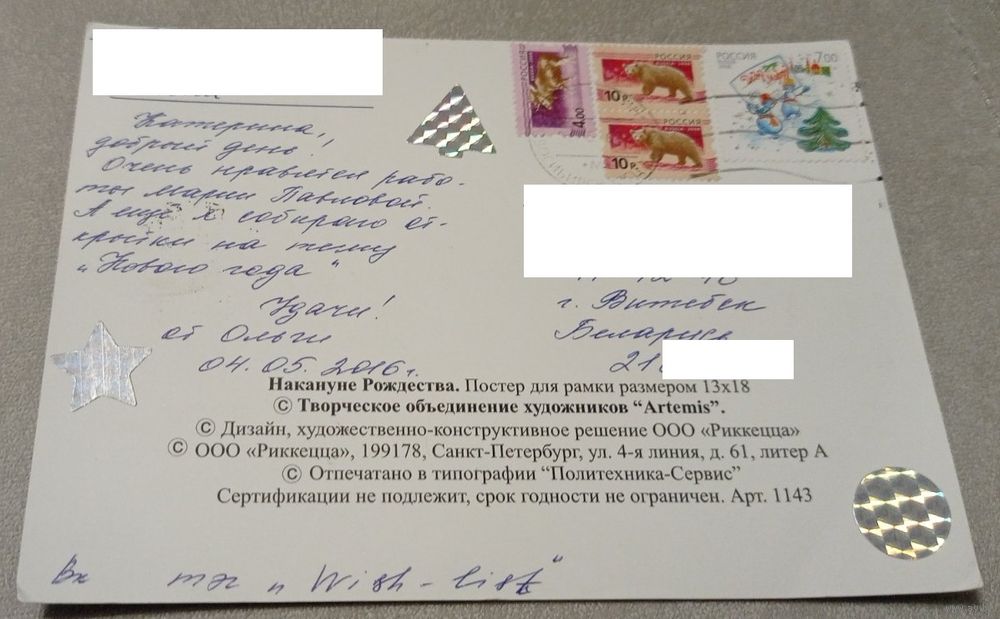 Катерина,
добрый день!
Очень нравятся рабо-
ты Марии Павловой.
А ещё я собираю от-
крытки на тему
„Нового года"
Удачи!
от Ольги
04.05.2016г.
РОССИЯ
4.00
РОССИЯ
10 Р.
РОССИЯ
10 Р.
РОССИЯ
7.00
г. Витебск
Беларусь
21
Накануне Рождества. Постер для рамки размером 13х18
© Творческое объединение художников “Artemis”.
© Дизайн, художественно-конструктивное решение ООО «Риккецца»
© ООО «Риккецца», 199178, Санкт-Петербург, ул. 4-я линия, д. 61, литер А
© Отпечатано в типографии “Политехника-Сервис”
Сертификации не подлежит, срок годности не ограничен. Арт. 1143
Вк тэг „Wish-list"